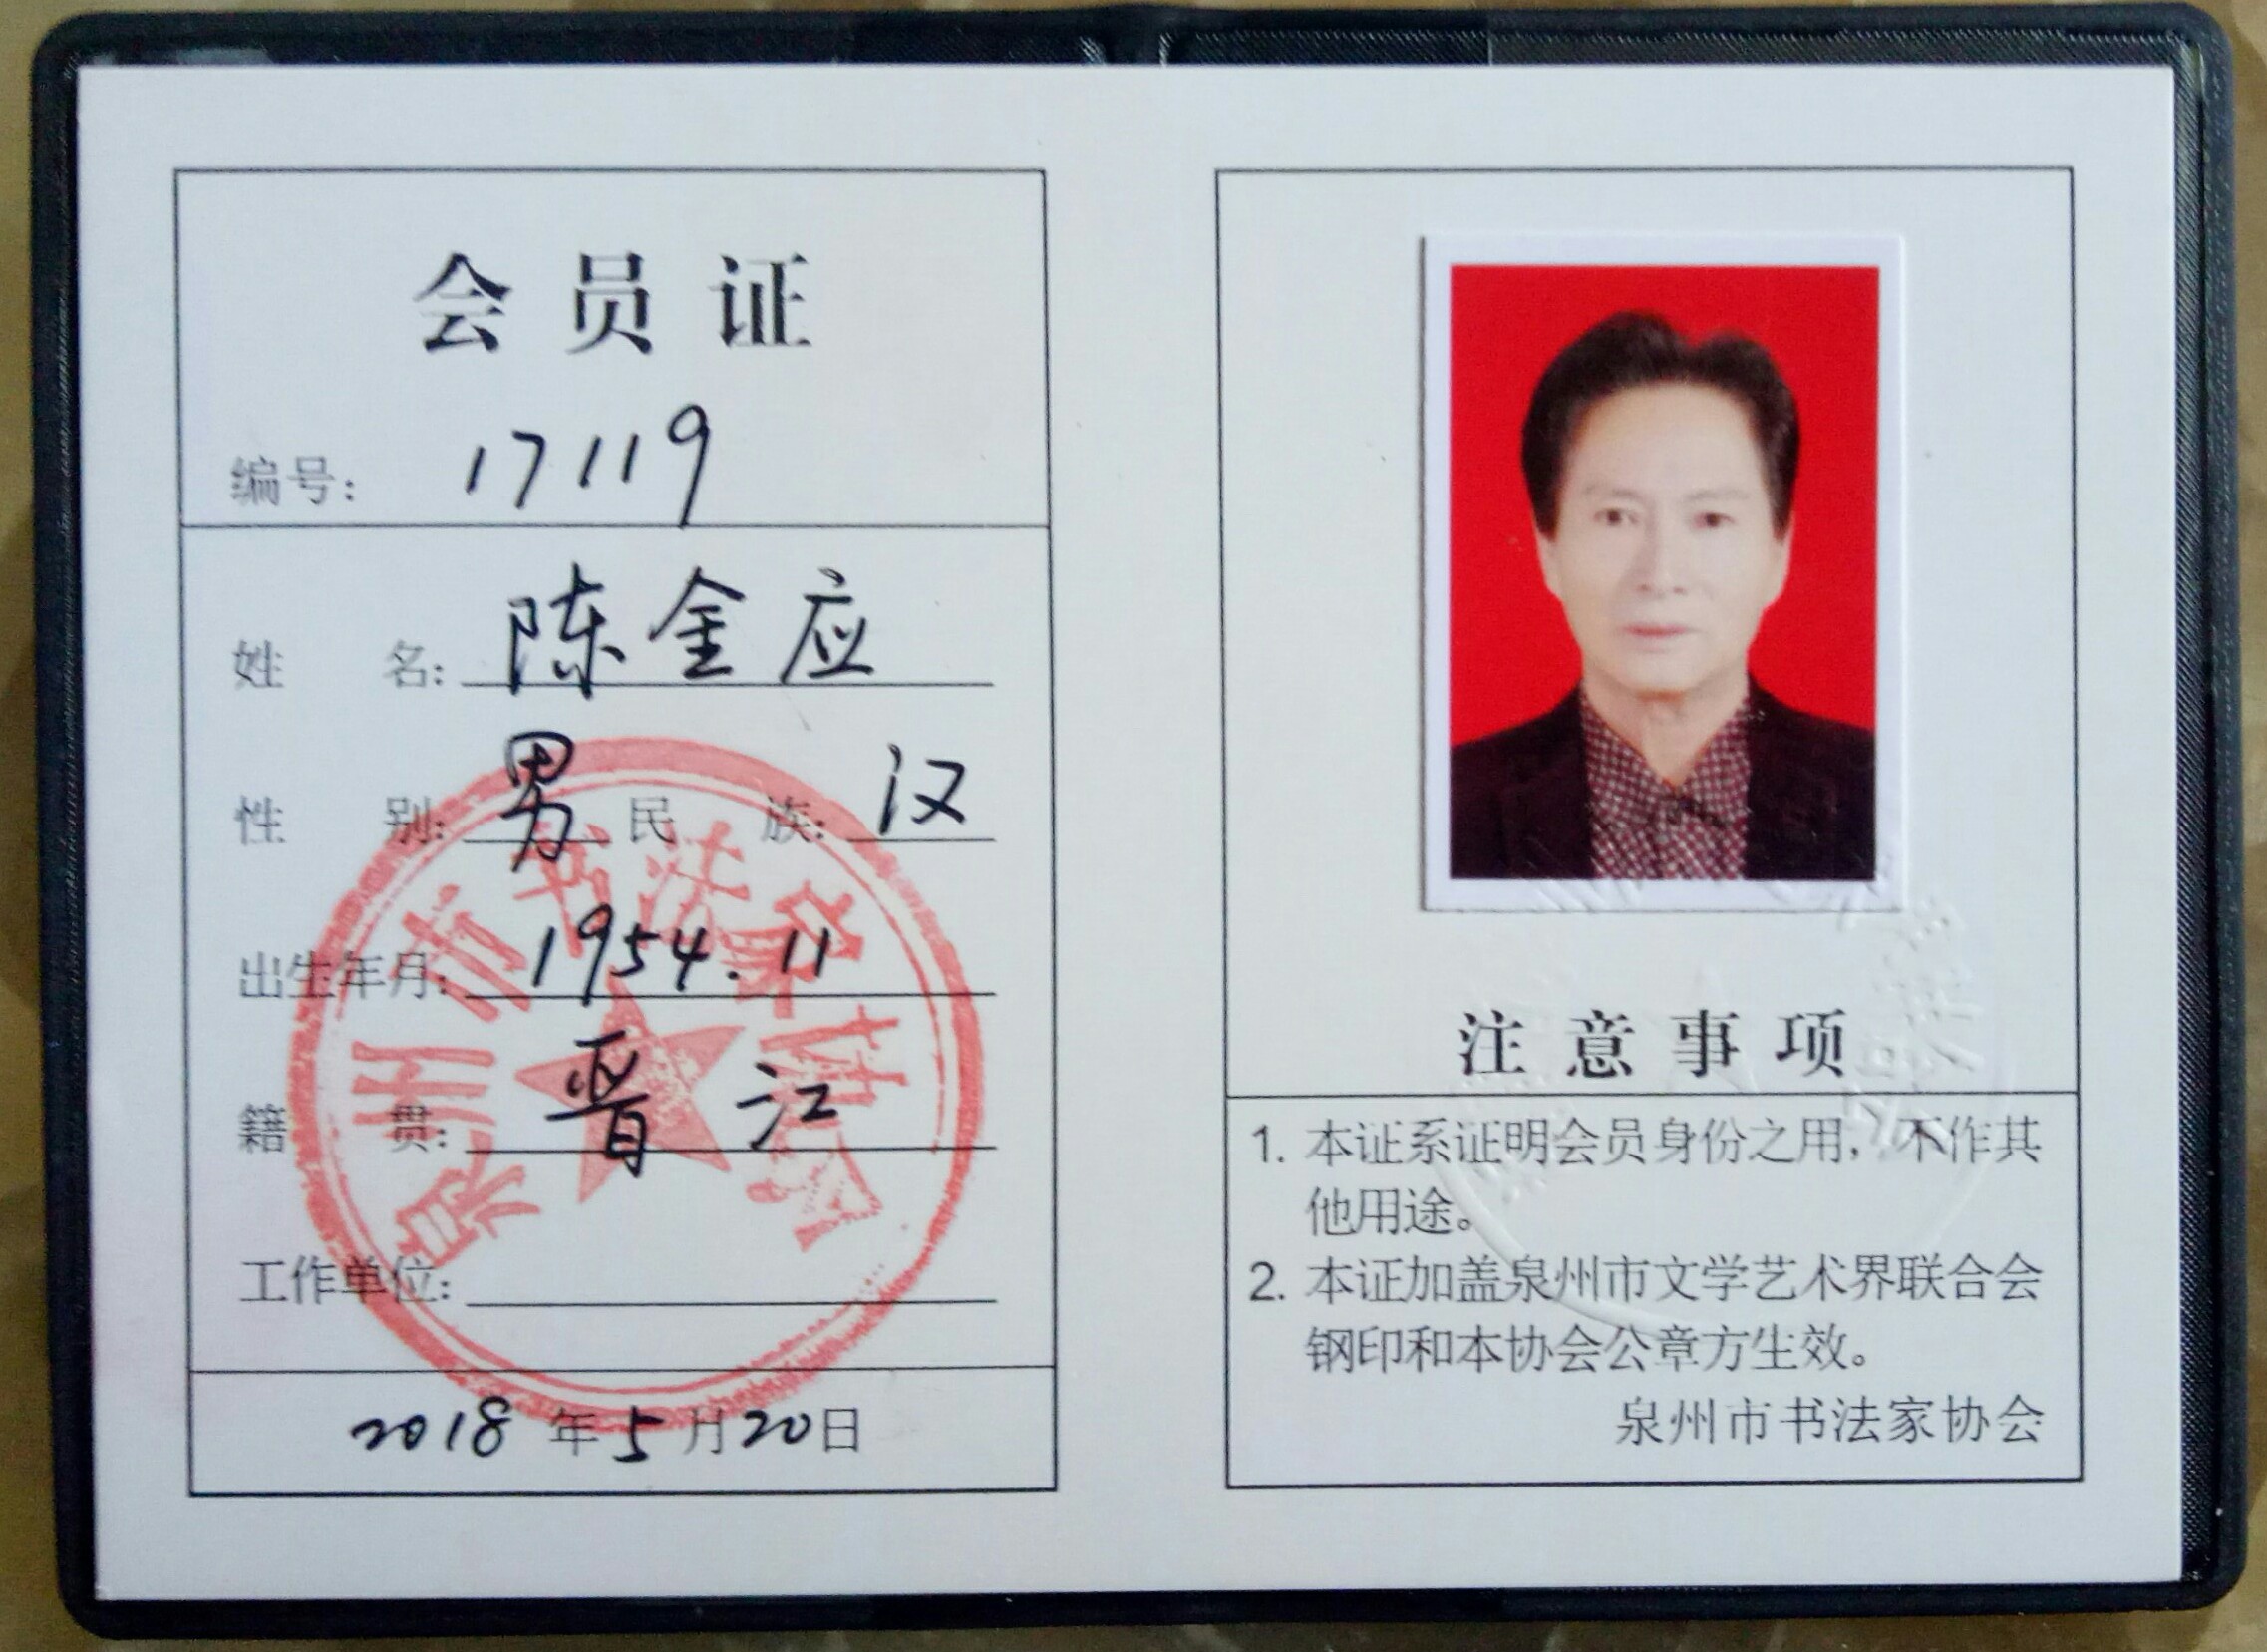 会员证
编号: 17119
姓名: 陈金应
性别: 男 民族: 汉
出生年月: 1954.11
籍贯: 晋江
工作单位:
泉州市书法家协会
2018年5月20日
注意事项
1. 本证系证明会员身份之用，不作其
他用途。
2. 本证加盖泉州市文学艺术界联合会
钢印和本协会公章方生效。
泉州市书法家协会